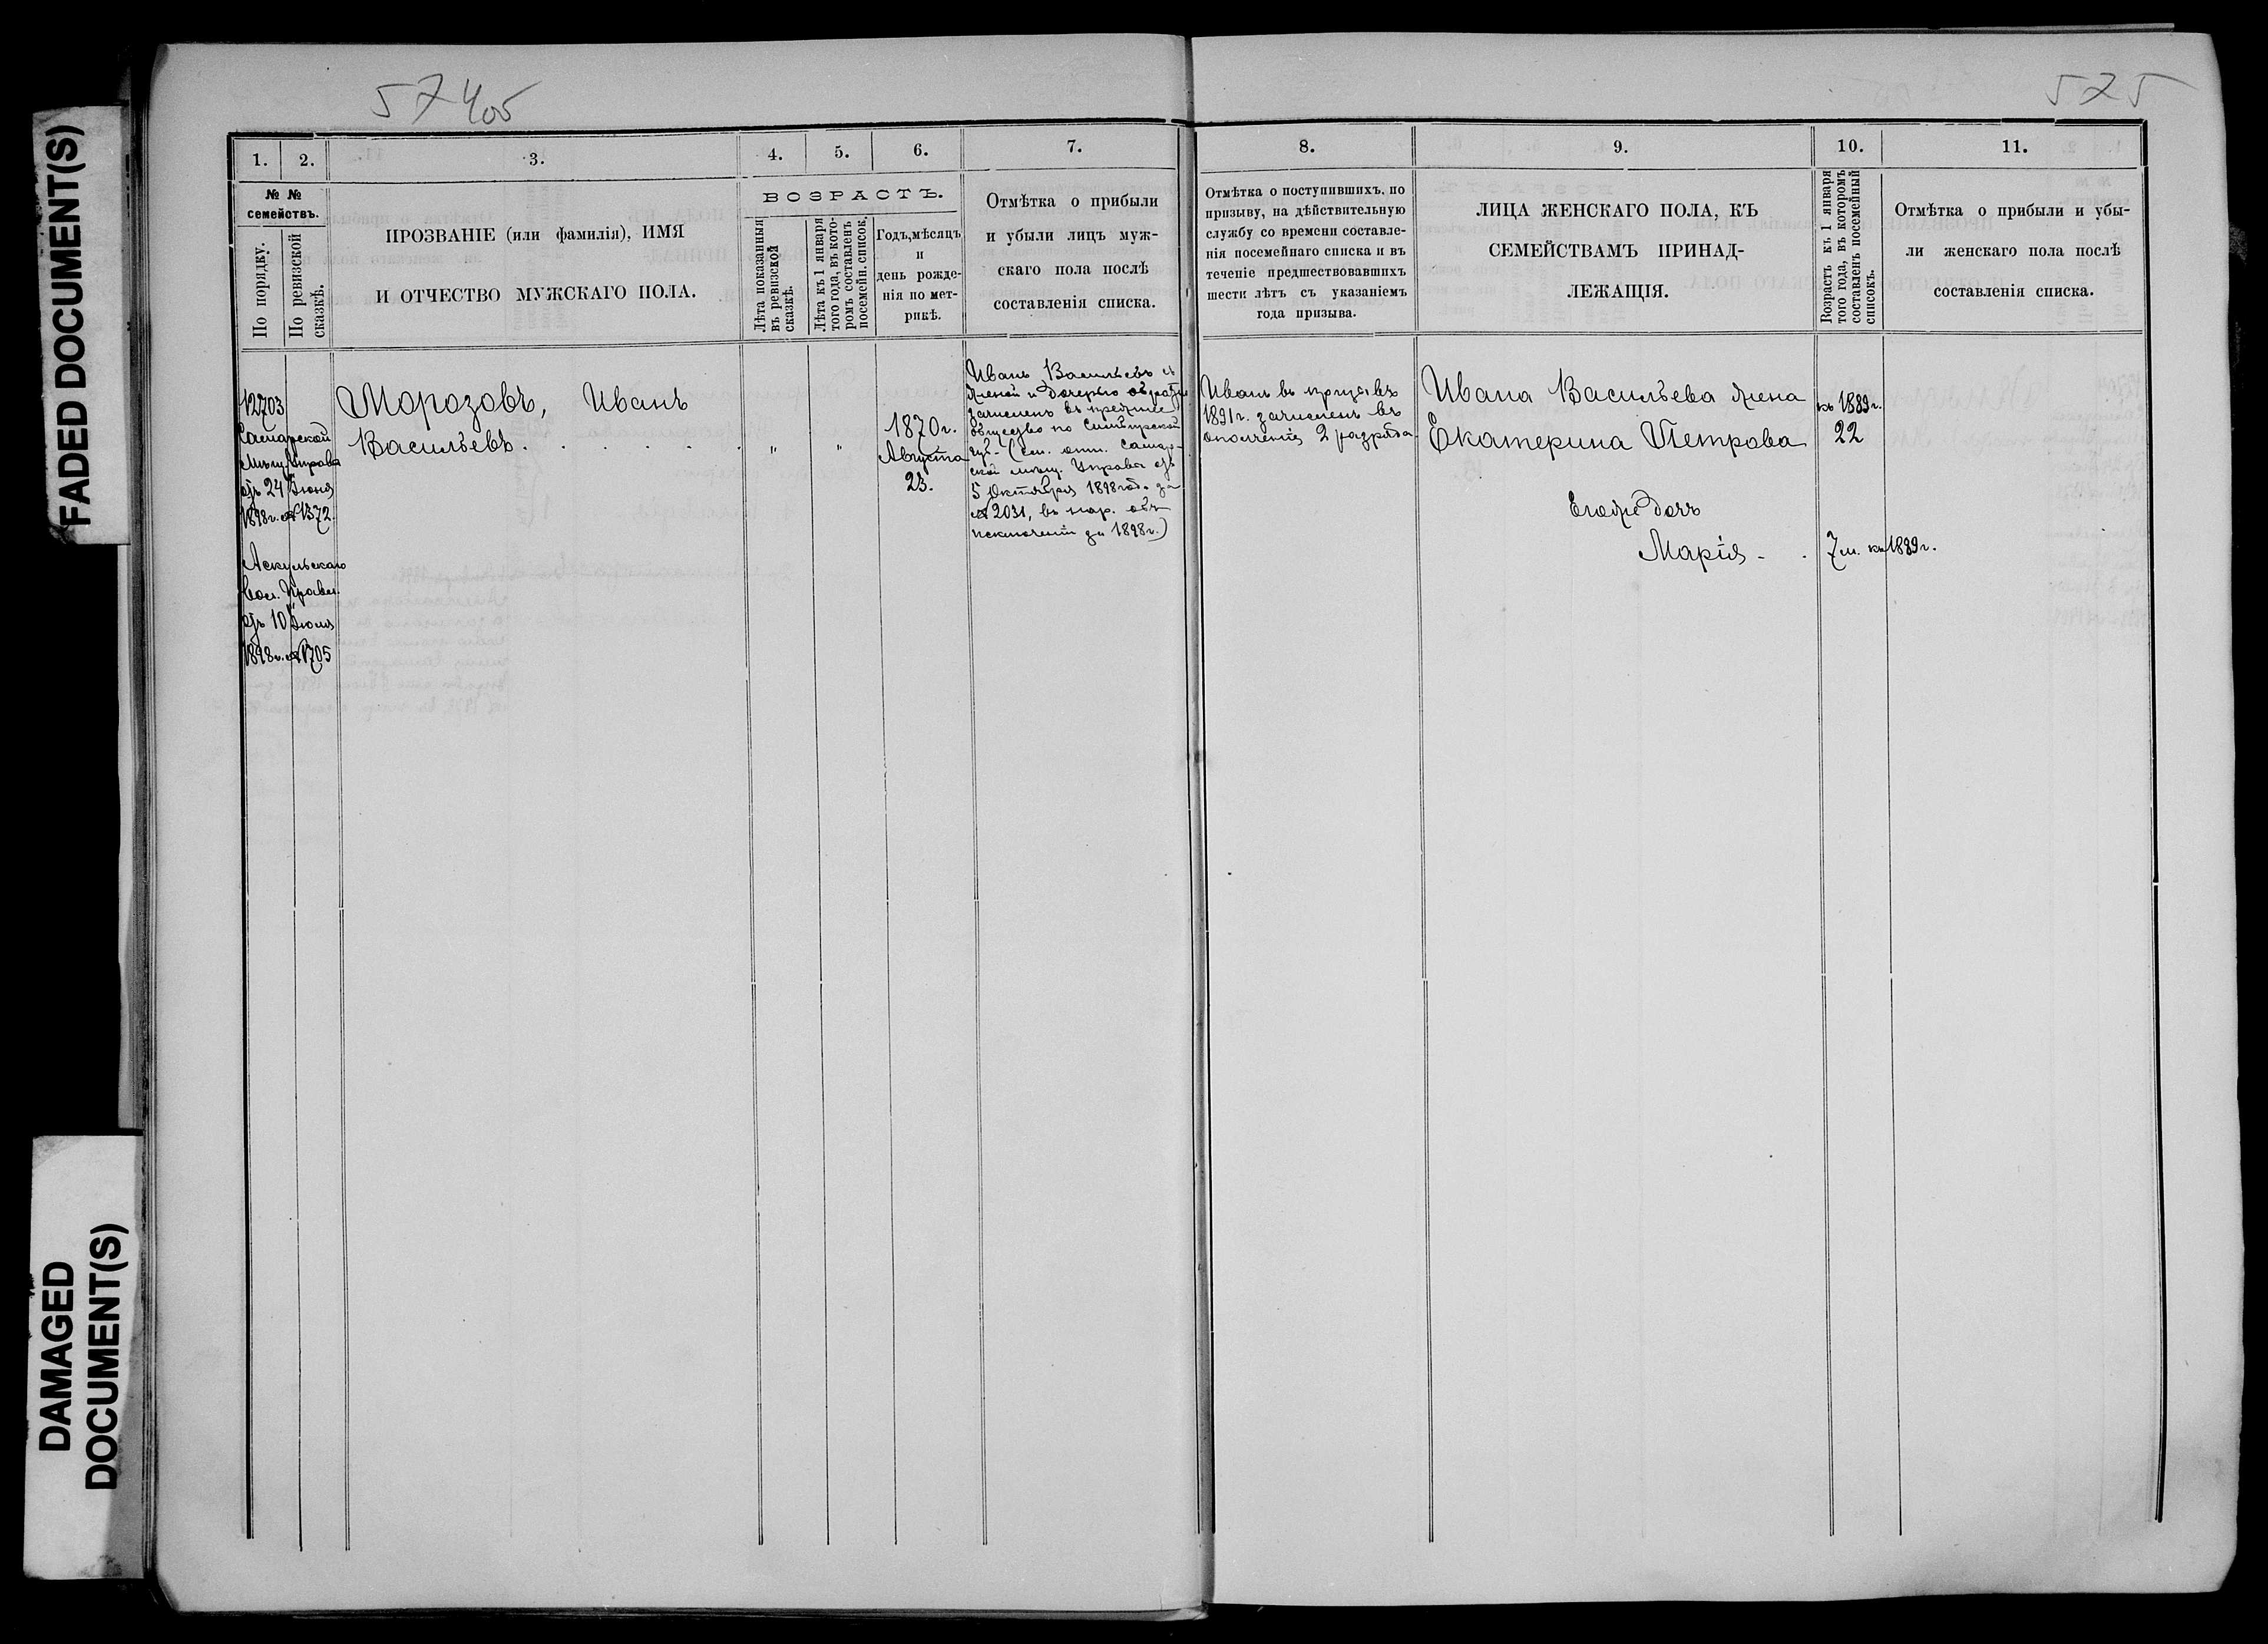 FADED DOCUMENT(S)
DAMAGED
DOCUMENT(S)
57405
575
1.
2.
3.
4.
5.
6.
7.
8.
9.
10.
11.
№ №
семействъ.
По порядку.
По ревизской
сказкѣ.
ПРОЗВАНІЕ (или фамилія), ИМЯ
И ОТЧЕСТВО МУЖСКАГО ПОЛА.
ВОЗРАСТЪ.
Лѣта показанныя
въ ревизской
сказкѣ.
Лѣта къ 1 января
того года, въ кото-
ромъ составленъ
посемейн. списокъ.
Годъ, мѣсяцъ
и
день рожде-
нія по мет-
рикѣ.
Отмѣтка о прибыли
и убыли лицъ муж-
скаго пола послѣ
составленія списка.
Отмѣтка о поступившихъ, по
призыву, на дѣйствительную
службу со времени составле-
нія посемейнаго списка и въ
теченіе предшествовавшихъ
шести лѣтъ съ указаніемъ
года призыва.
ЛИЦА ЖЕНСКАГО ПОЛА, КЪ
СЕМЕЙСТВАМЪ ПРИНАД-
ЛЕЖАЩІЯ.
Возрастъ къ 1 января
того года, въ которомъ
составленъ посемейный
списокъ.
Отмѣтка о прибыли и убы-
ли женскаго пола послѣ
составленія списка.
12703
Самарской
Мѣщ. Управы
отъ 24 Іюня
1898 г. № 1372.
Аскульскаго
Вол. Правл.
отъ 10 Іюля
1898 г. № 1705
Морозовъ, Иванъ
Васильевъ . . . . .
"
"
1870 г.
Августа
23.
Иванъ Васильевъ съ
женой и дочерью обратно
зачисленъ въ прежнее
общество по Симбирской
губ. (см. отн. Самар-
ской мѣщ. Управы отъ
5 Октября 1898 года за
№ 2031, въ нар. объ
исключеніи за 1898 г.)
Иванъ въ призывъ
1891 г. зачисленъ въ
ополченіе 2 разряда
Ивана Васильева жена
Екатерина Петрова
къ 1889 г.
22
Его же дочь
Марія - .
7 м. къ 1889 г.